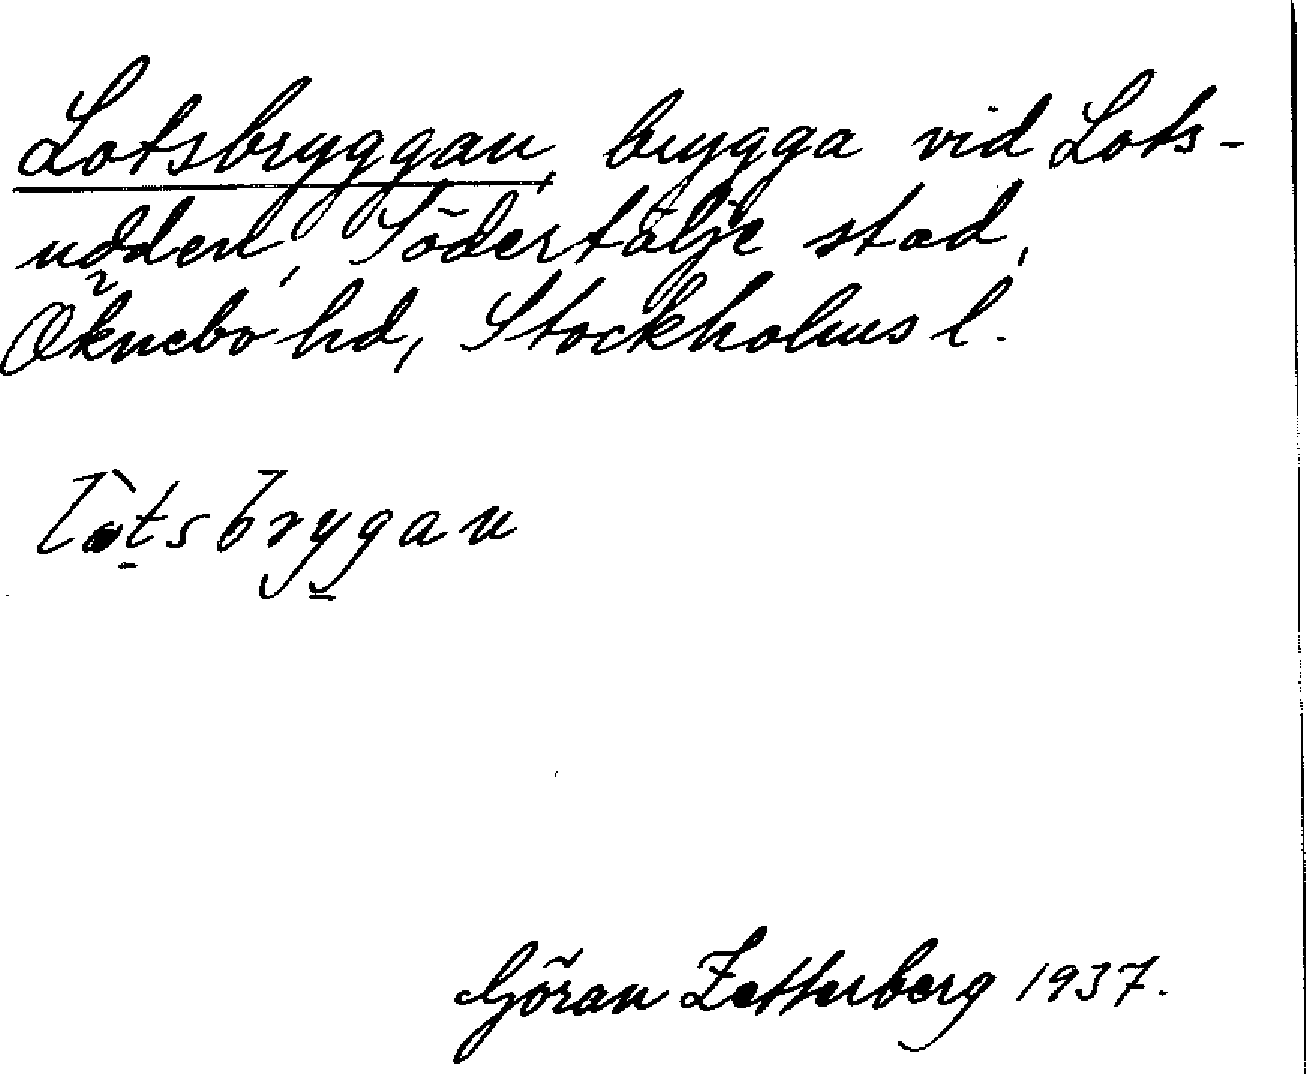 Lotsbryggan, brygga vid Lots-
udden, Södertälje stad,
Öknebo hd, Stockholms l.
lòtsbrygan
Göran Zetterberg 1937.